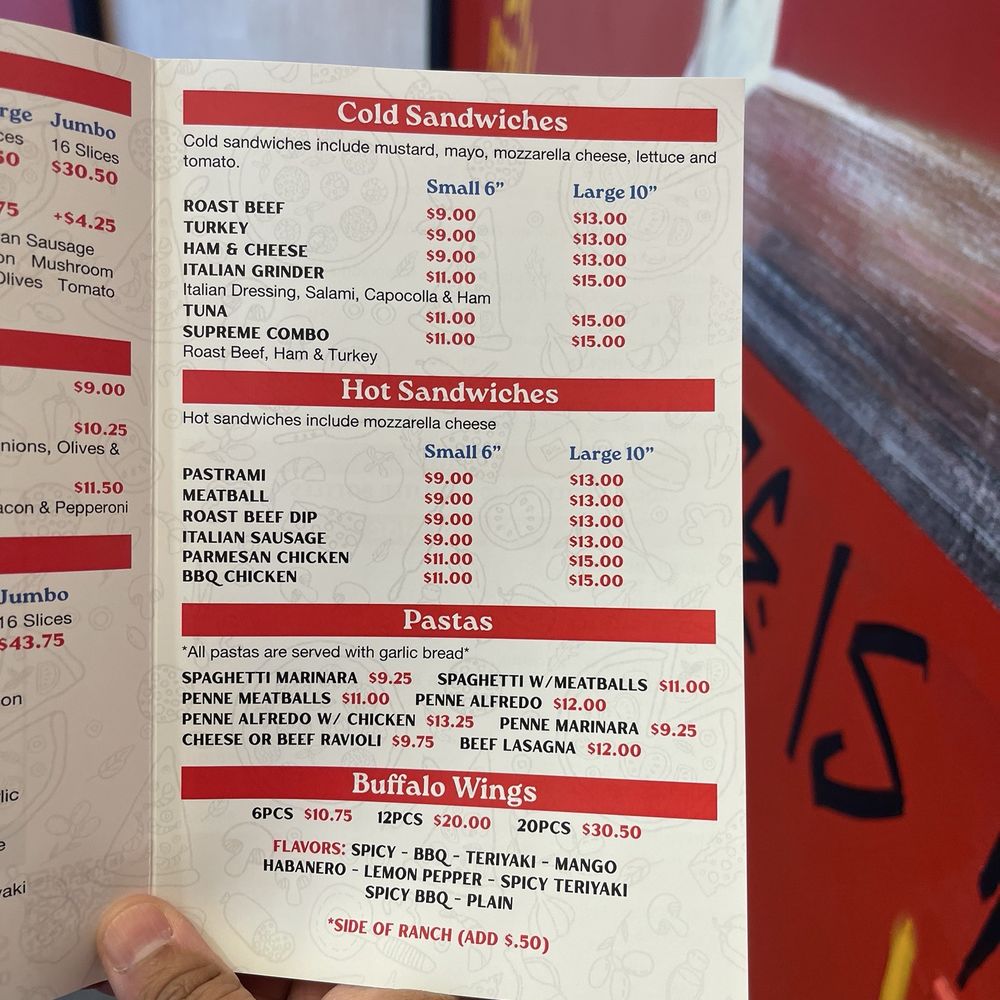 Jumbo
16 Slices
$30.50
+$4.25
Sausage
Mushroom
Olives Tomato
$9.00
$10.25
Olives &
$11.50
& Pepperoni
Jumbo
16 Slices
$43.75
Cold Sandwiches
Cold sandwiches include mustard, mayo, mozzarella cheese, lettuce and
tomato.
Small 6” Large 10”
ROAST BEEF $9.00 $13.00
TURKEY $9.00 $13.00
HAM & CHEESE $9.00 $13.00
ITALIAN GRINDER $11.00 $15.00
Italian Dressing, Salami, Capocolla & Ham
TUNA $11.00 $15.00
SUPREME COMBO $11.00 $15.00
Roast Beef, Ham & Turkey
Hot Sandwiches
Hot sandwiches include mozzarella cheese
Small 6” Large 10”
PASTRAMI $9.00 $13.00
MEATBALL $9.00 $13.00
ROAST BEEF DIP $9.00 $13.00
ITALIAN SAUSAGE $9.00 $13.00
PARMESAN CHICKEN $11.00 $15.00
BBQ CHICKEN $11.00 $15.00
Pastas
*All pastas are served with garlic bread*
SPAGHETTI MARINARA $9.25 SPAGHETTI W/MEATBALLS $11.00
PENNE MEATBALLS $11.00 PENNE ALFREDO $12.00
PENNE ALFREDO W/ CHICKEN $13.25 PENNE MARINARA $9.25
CHEESE OR BEEF RAVIOLI $9.75 BEEF LASAGNA $12.00
Buffalo Wings
6PCS $10.75 12PCS $20.00 20PCS $30.50
FLAVORS: SPICY - BBQ - TERIYAKI - MANGO
HABANERO - LEMON PEPPER - SPICY TERIYAKI
SPICY BBQ - PLAIN
*SIDE OF RANCH (ADD $.50)